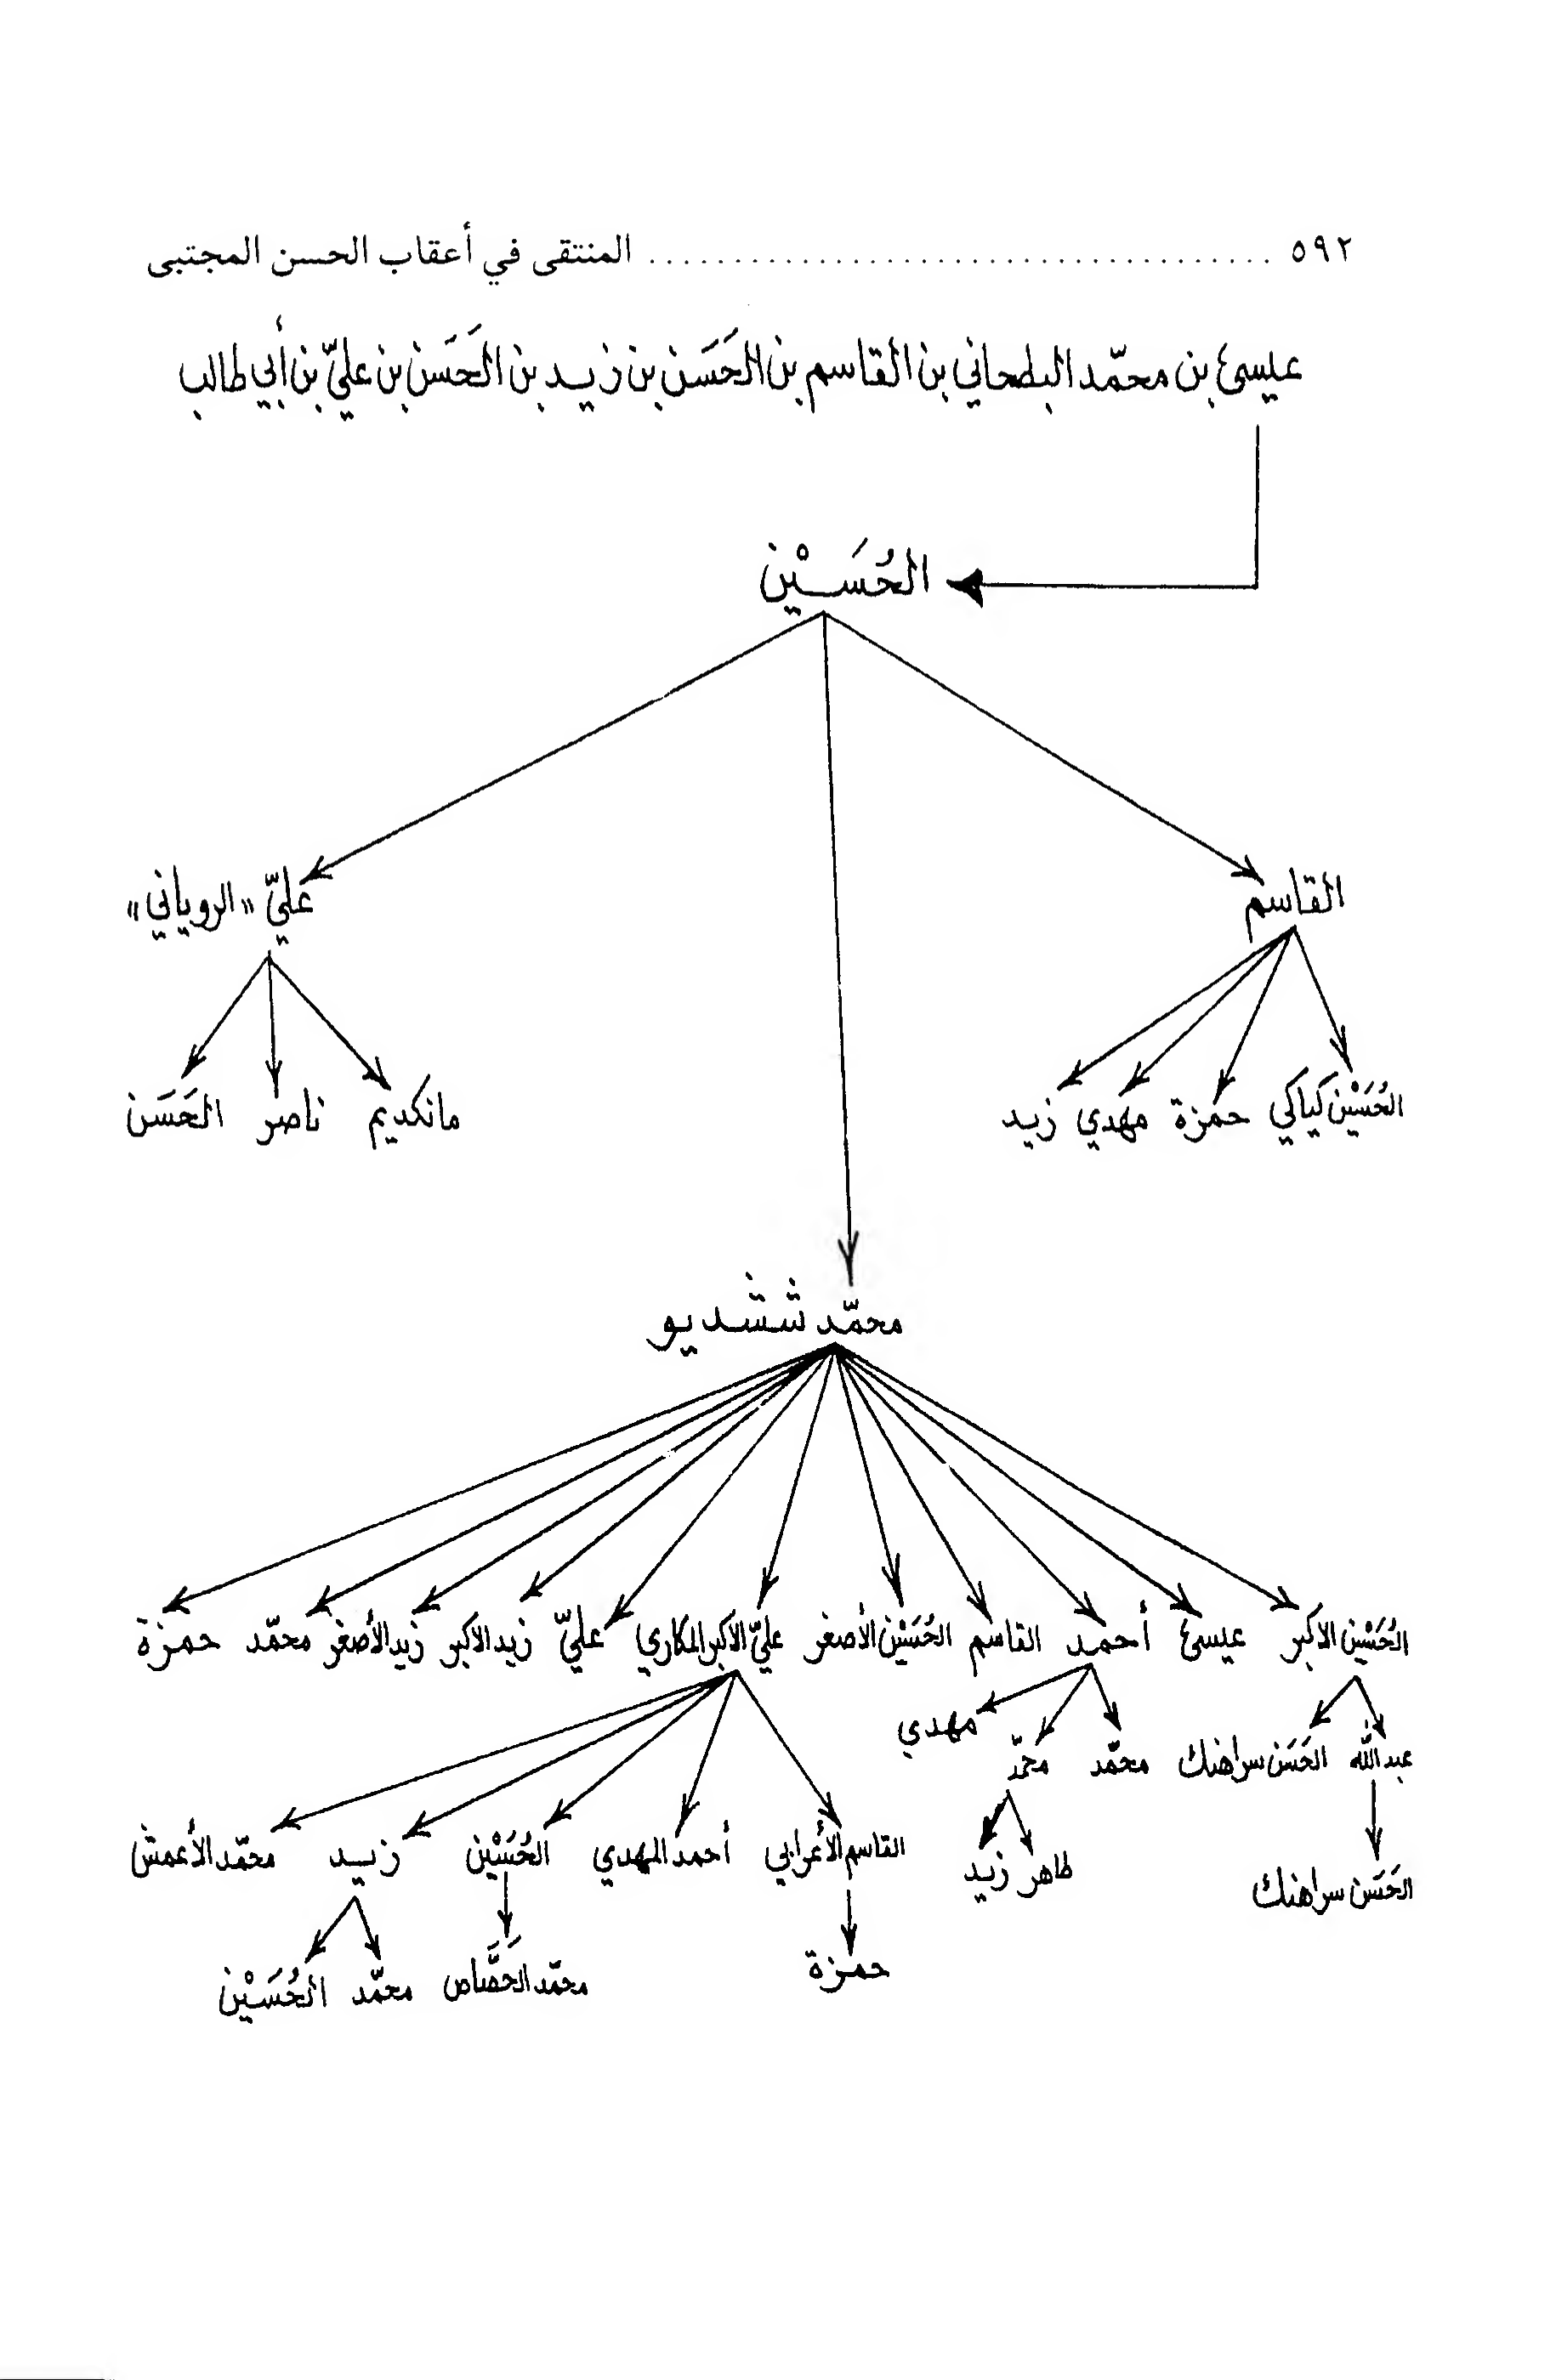 ٥٩٢ ..................................... المنتقى في أعقاب الحسن المجتبى
عيسىٰ بن محمّد البطحاني بن القاسم بن الحَسَن بن زيد بن الحَسَن بن عليّ بن أبي طالب
الحُسَيْن
القاسم عليّ «الروياني»
الحُسَيْن كياكي حمزة مهدي زيد مانكديم ناصر الحَسَن
محمّد ششديو
الحُسَيْن الاكبر عيسىٰ أحمد القاسم الحُسَيْن الأصغر عليّ الاكبر المكاري عليّ زيد الاكبر زيد الأصغر محمّد حمزة
عبد الله الحَسَن سراهنك محمّد محمّد مهدي
الحَسَن سراهنك طاهر زيد القاسم الأعرابي أحمد المهدي الحُسَيْن زيد محمّد الأعمش
حمزة محمّد الحَصَّاص محمّد الحُسَيْن